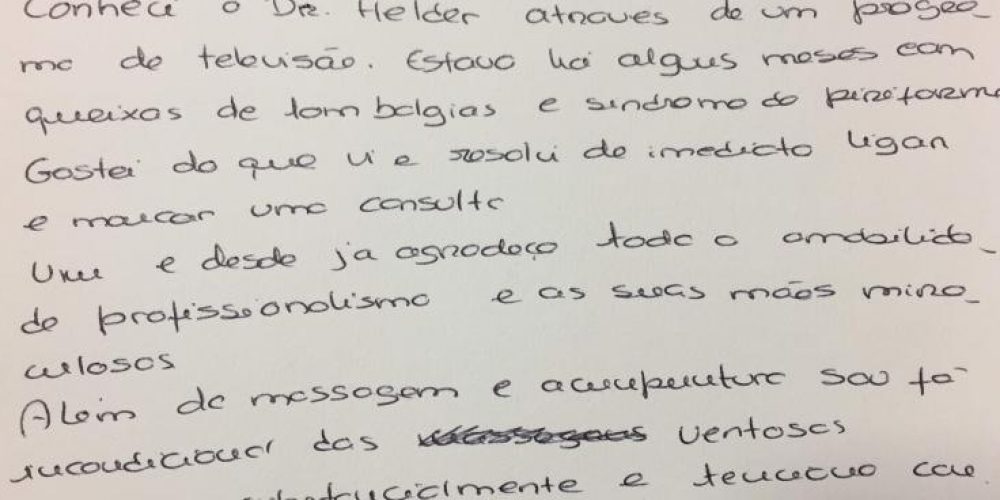 Conheci o Dr. Helder atraves de um progra_
ma de televisão. Estava há algus meses com
queixas de lombalgias e sindroma do piriforme
Gostei do que vi e resolvi de imediato ligar
e marcar uma consulta
Vim e desde já agradeço toda a amabilida_
de profissionalismo e as suas mãos mira_
culosas
Além da massagem e acupunctura sou fã
incondicional das ventosas
e